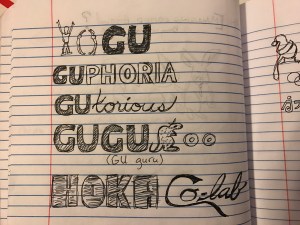 GU
GUPHORIA
GUtorious
GUGU
(GU guru)
HOKA Co-lab